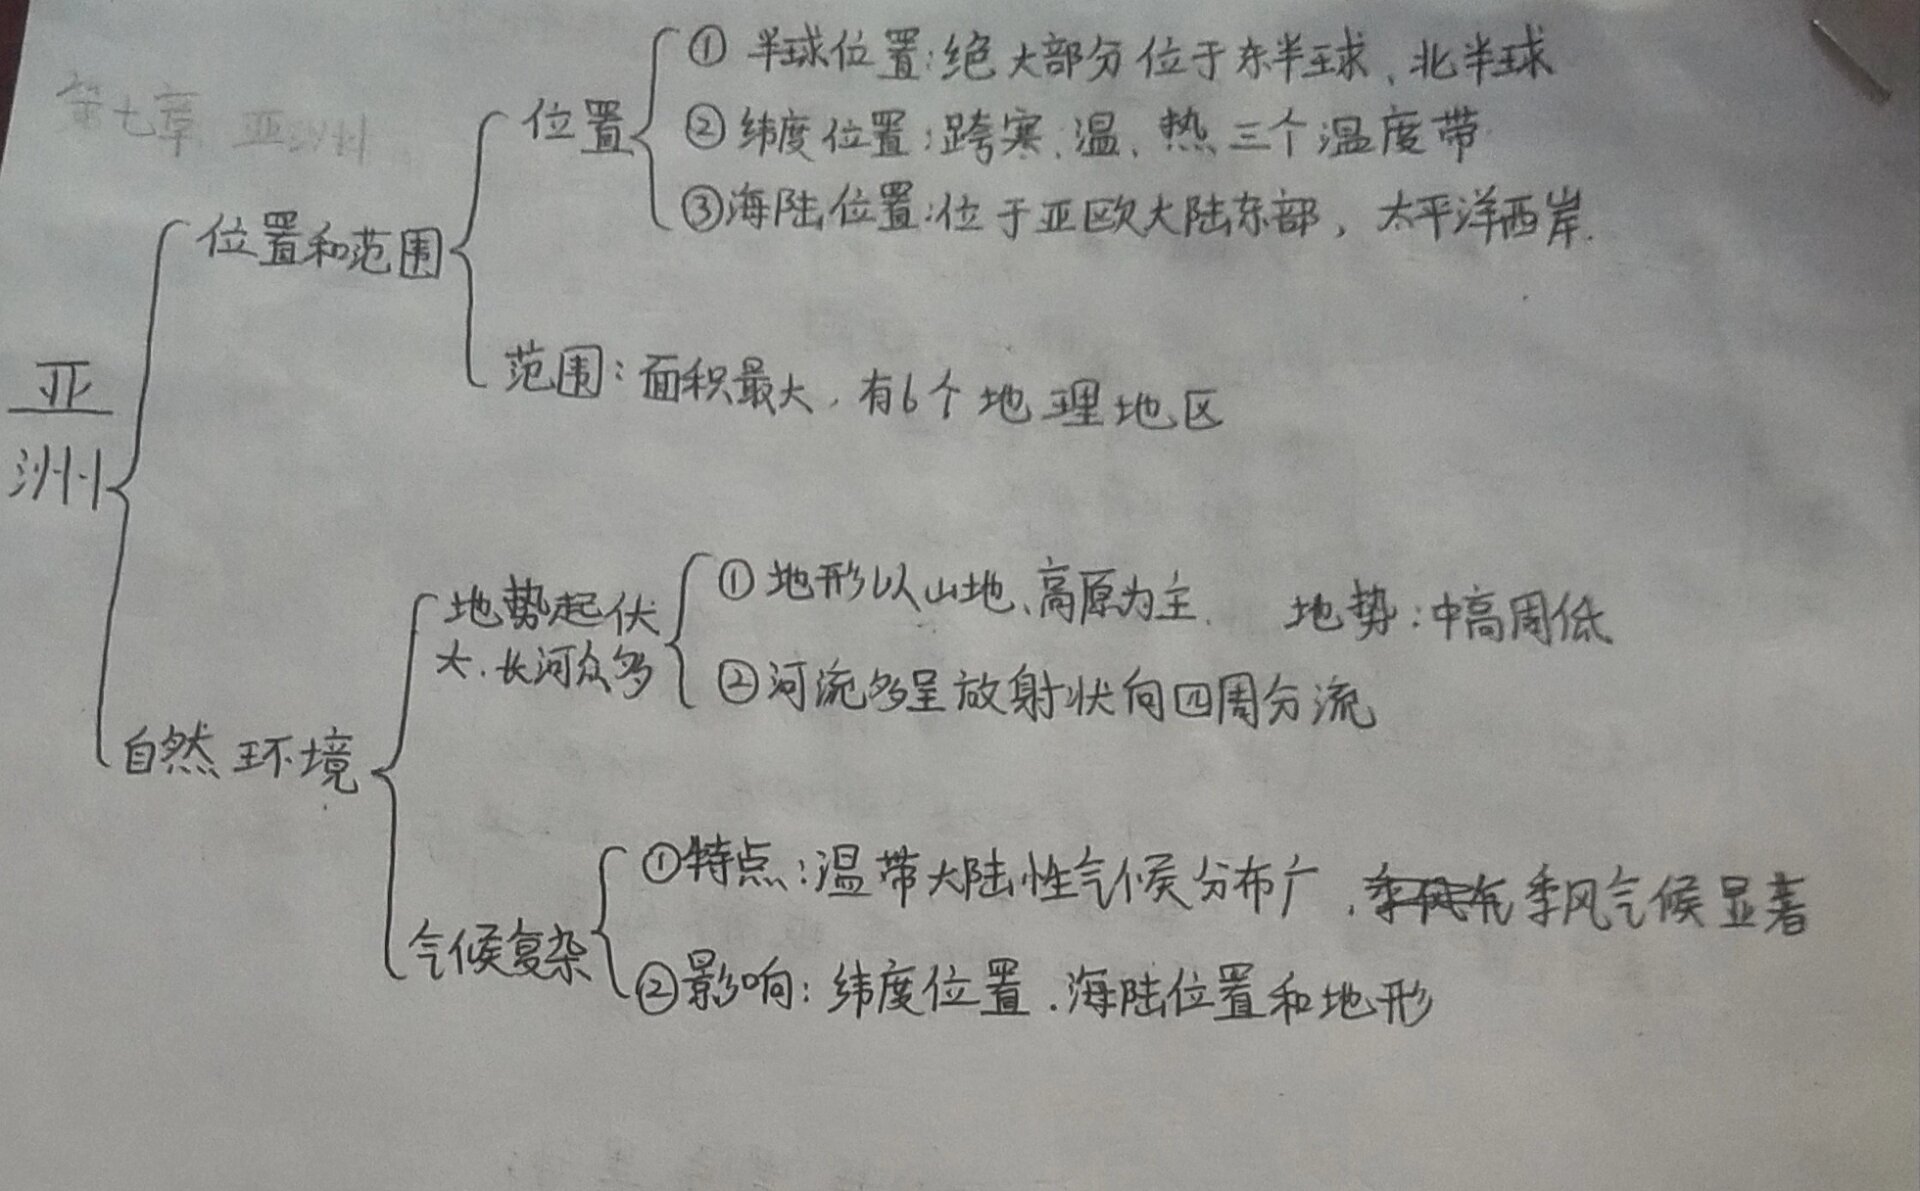 第七章 亚洲
亚洲
位置和范围
位置
① 半球位置:绝大部分位于东半球、北半球
② 纬度位置:跨寒、温、热三个温度带
③海陆位置:位于亚欧大陆东部,太平洋西岸.
范围:面积最大,有6个地理地区
自然环境
地势起伏
大.长河众多
①地形以山地、高原为主. 地势:中高周低
②河流多呈放射状向四周分流
气候复杂
①特点:温带大陆性气候分布广,季风气季风气候显著
②影响:纬度位置.海陆位置和地形